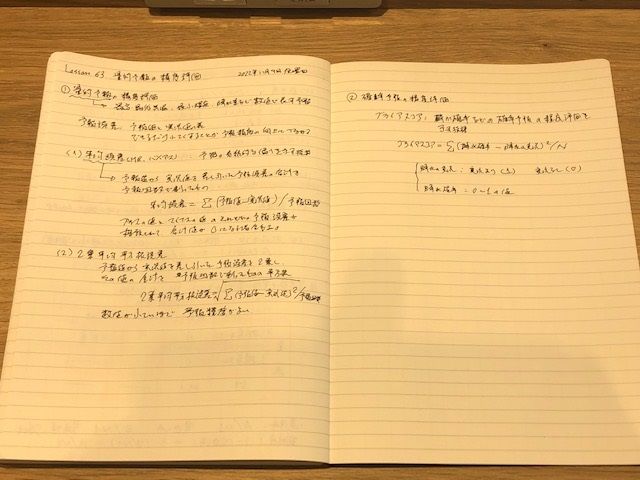 Lesson 63 量的予報の精度評価 2022年11月 日
① 量的予報の精度評価
最高・最低気温、最小湿度、降水量など数値で表す予報
予報誤差 予報値と実況値の差
できるだけ小さくすることが予報精度の向上につながる
(1) 平均誤差(ME、バイアス) 予報の系統的な偏りを示す指数
予報値から実況値を差し引いた予報誤差の合計を
予報回数で割ったもの
平均誤差 = Σ(予報値−実況値)/予報回数
プラスの値とマイナスの値のそれぞれの予報誤差が
相殺されて 合計値が0になる場合もある
(2) 2乗平均平方根誤差
予報値から実況値を差し引いた予報誤差を2乗し、
その値の合計を 予報回数で割った値の平方根
2乗平均平方根誤差=√Σ(予報値−実況値)²/予報回数
数値が小さいほど 予報精度がよい
② 確率予報の精度評価
ブライアスコア: 降水確率などの確率予報の精度評価を
示す指数
ブライアスコア = Σ(降水確率 − 降水の実況)²/N
降水の実況: 実況あり(1) 実況なし(0)
降水確率 = 0〜1の値